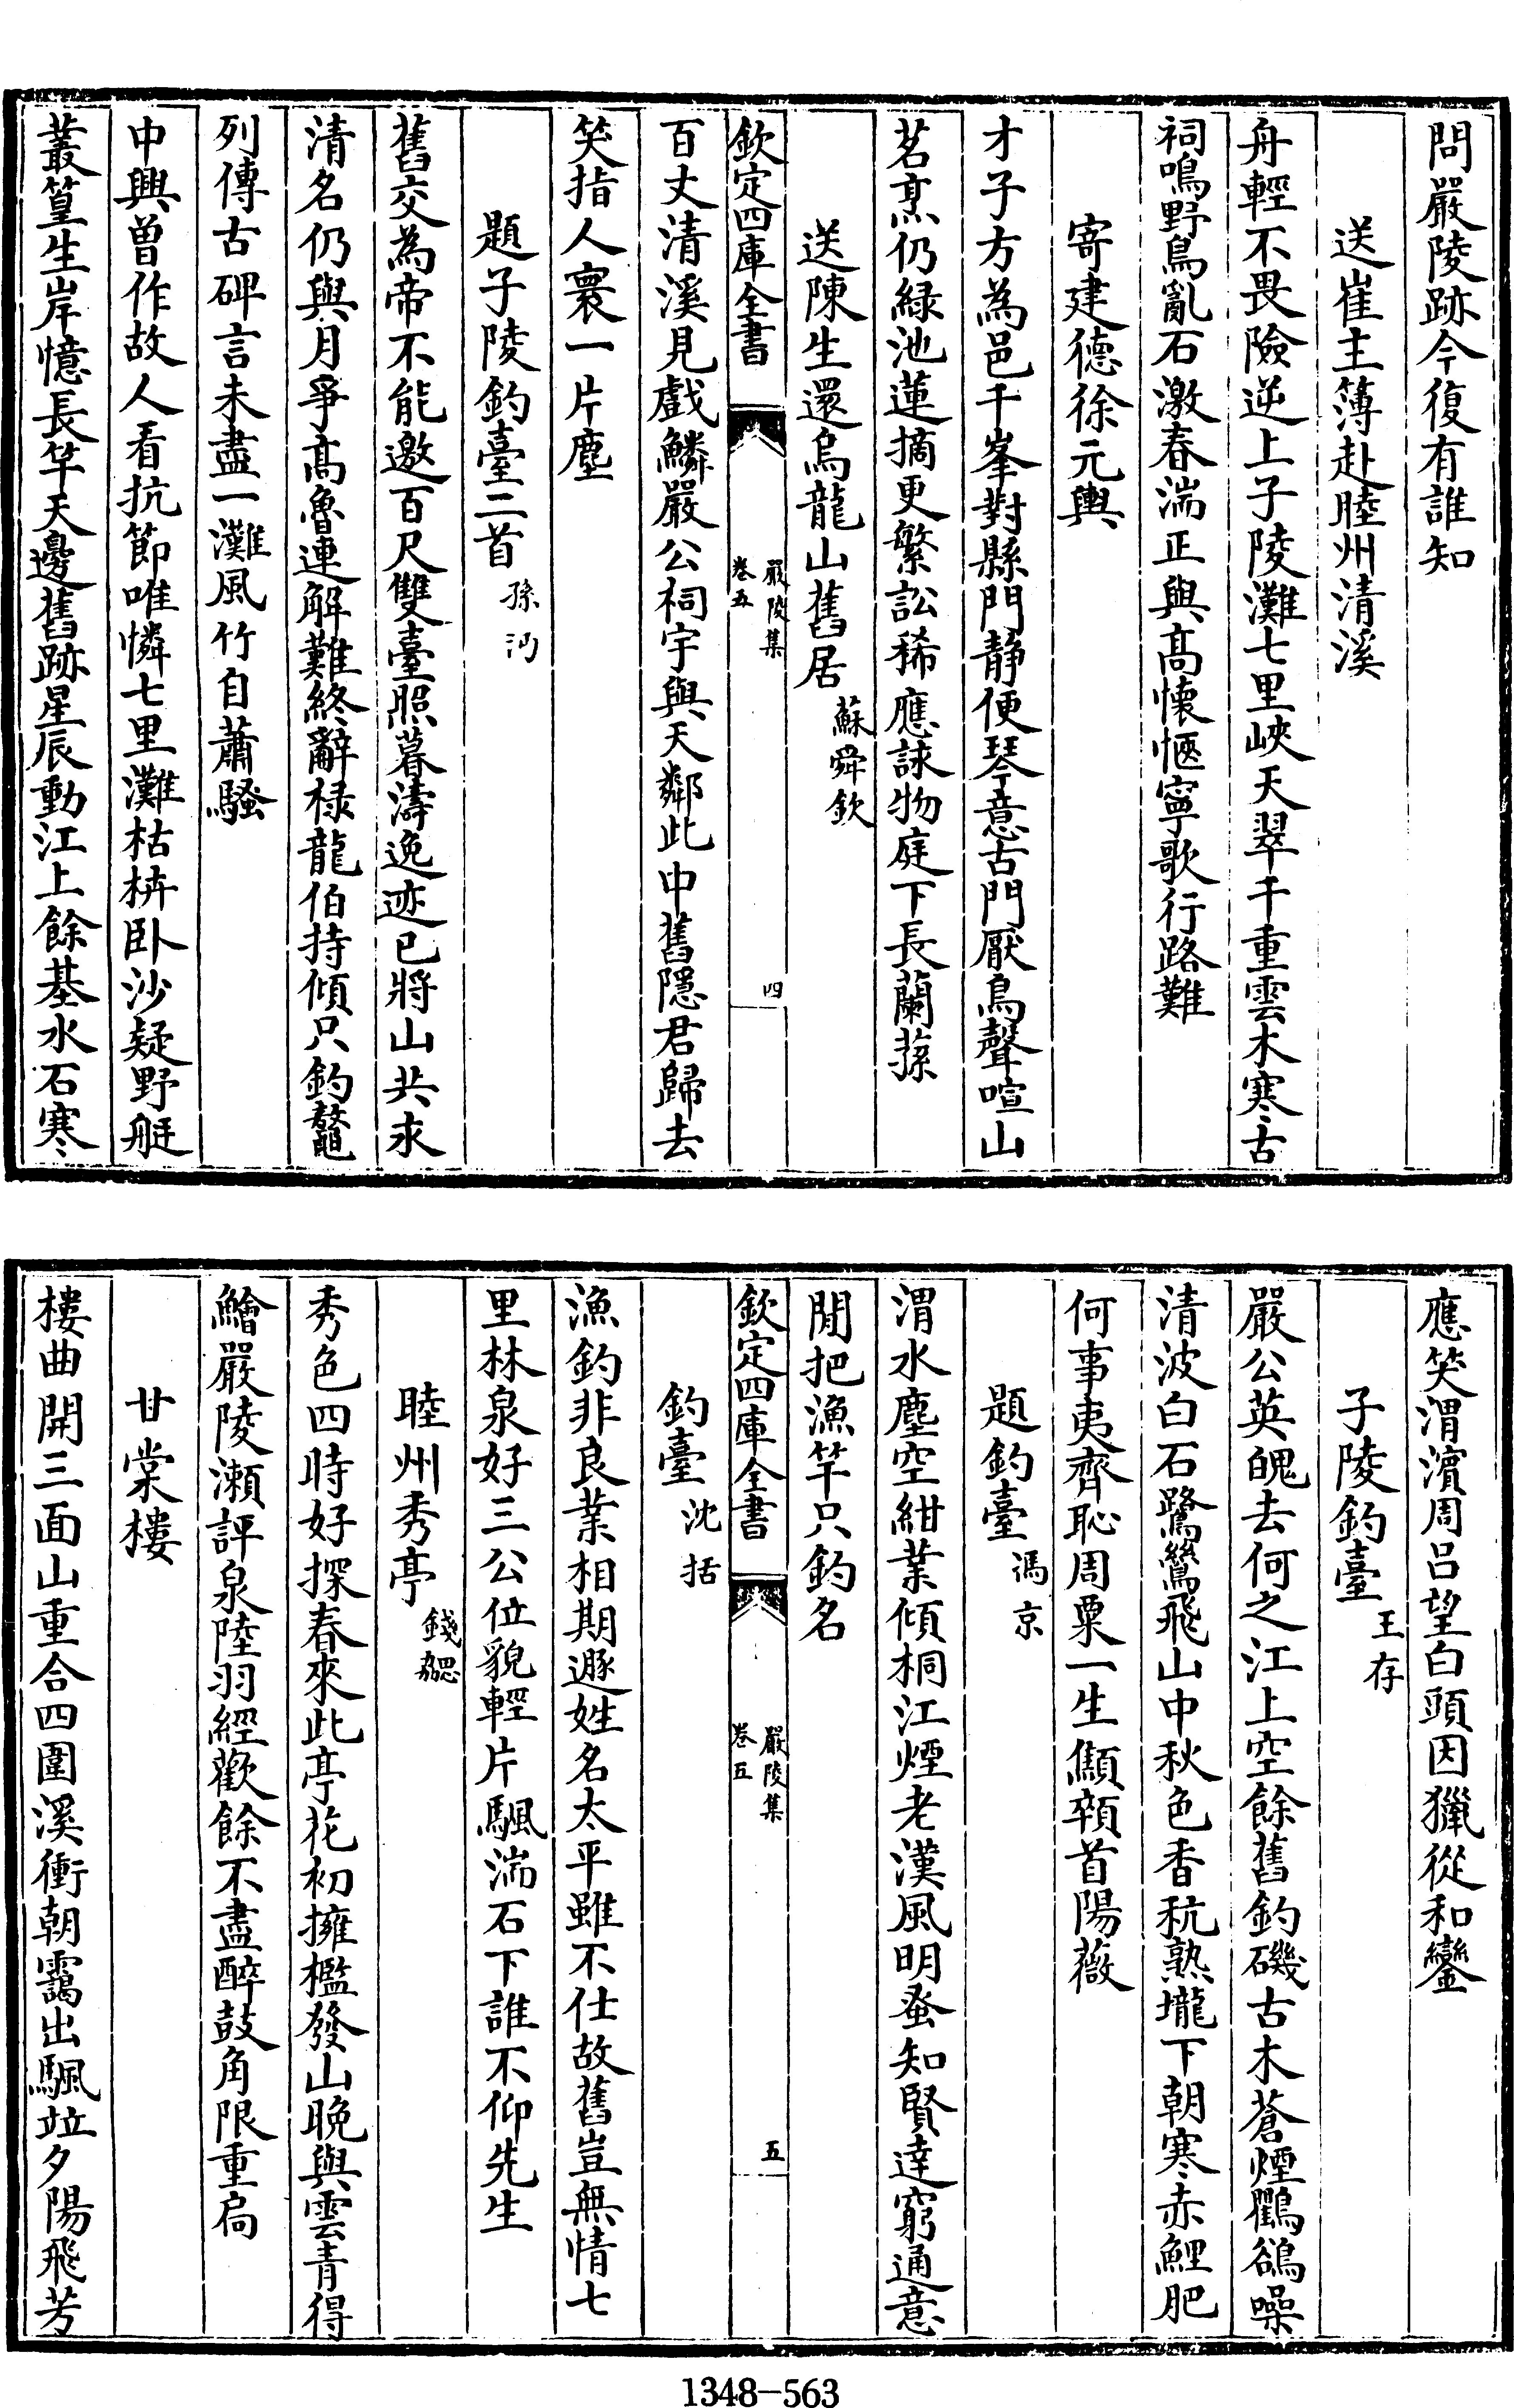 問嚴陵跡今復有誰知
送崔主簿赴睦州清溪
舟輕不畏險逆上子陵灘七里峽天翠千重雲木寒古
祠鳴野鳥亂石激春湍正與髙懷愜寧歌行路難
寄建德徐元輿
才子方為邑千峯對縣門静便琴意古門厭鳥聲喧山
茗烹仍緑池蓮摘更繁訟稀應詠物庭下長蘭蓀
送陳生還烏龍山舊居 蘇舜欽
欽定四庫全書 嚴陵集 卷五 四
百丈清溪見戲鱗嚴公祠宇與天鄰此中舊隱君歸去
笑指人寰一片塵
題子陵釣臺二首 孫沔
舊交為帝不能邀百尺雙臺照暮濤逸迹已將山共永
清名仍與月爭髙魯連解難終辭禄龍伯持傾只釣鼇
列傳古碑言未盡一灘風竹自蕭騷
中興曽作故人看抗節唯憐七里灘枯枿卧沙疑野艇
叢篁生岸憶長竿天邊舊跡星辰動江上餘基水石寒
應笑渭濵周吕望白頭因獵從和鑾
子陵釣臺 王存
嚴公英魄去何之江上空餘舊釣磯古木蒼煙鸛鶴噪
清波白石鷺鷥飛山中秋色香秔熟壠下朝寒赤鯉肥
何事夷齊恥周粟一生顦顇首陽薇
題釣臺 馮京
渭水塵空紺業傾桐江煙老漢風明蚤知賢達窮通意
閒把漁竿只釣名
欽定四庫全書 嚴陵集 卷五 五
釣臺 沈括
漁釣非良業相期遯姓名太平雖不仕故舊豈無情七
里林泉好三公位貌輕片颿湍石下誰不仰先生
睦州秀亭 錢勰
秀色四時好探春來此亭花初擁檻發山晩與雲青得
鱠嚴陵瀬評泉陸羽經歡餘不盡醉鼓角限重扃
甘棠樓
樓曲開三面山重合四圍溪衝朝靄出颿竝夕陽飛芳
1348-563